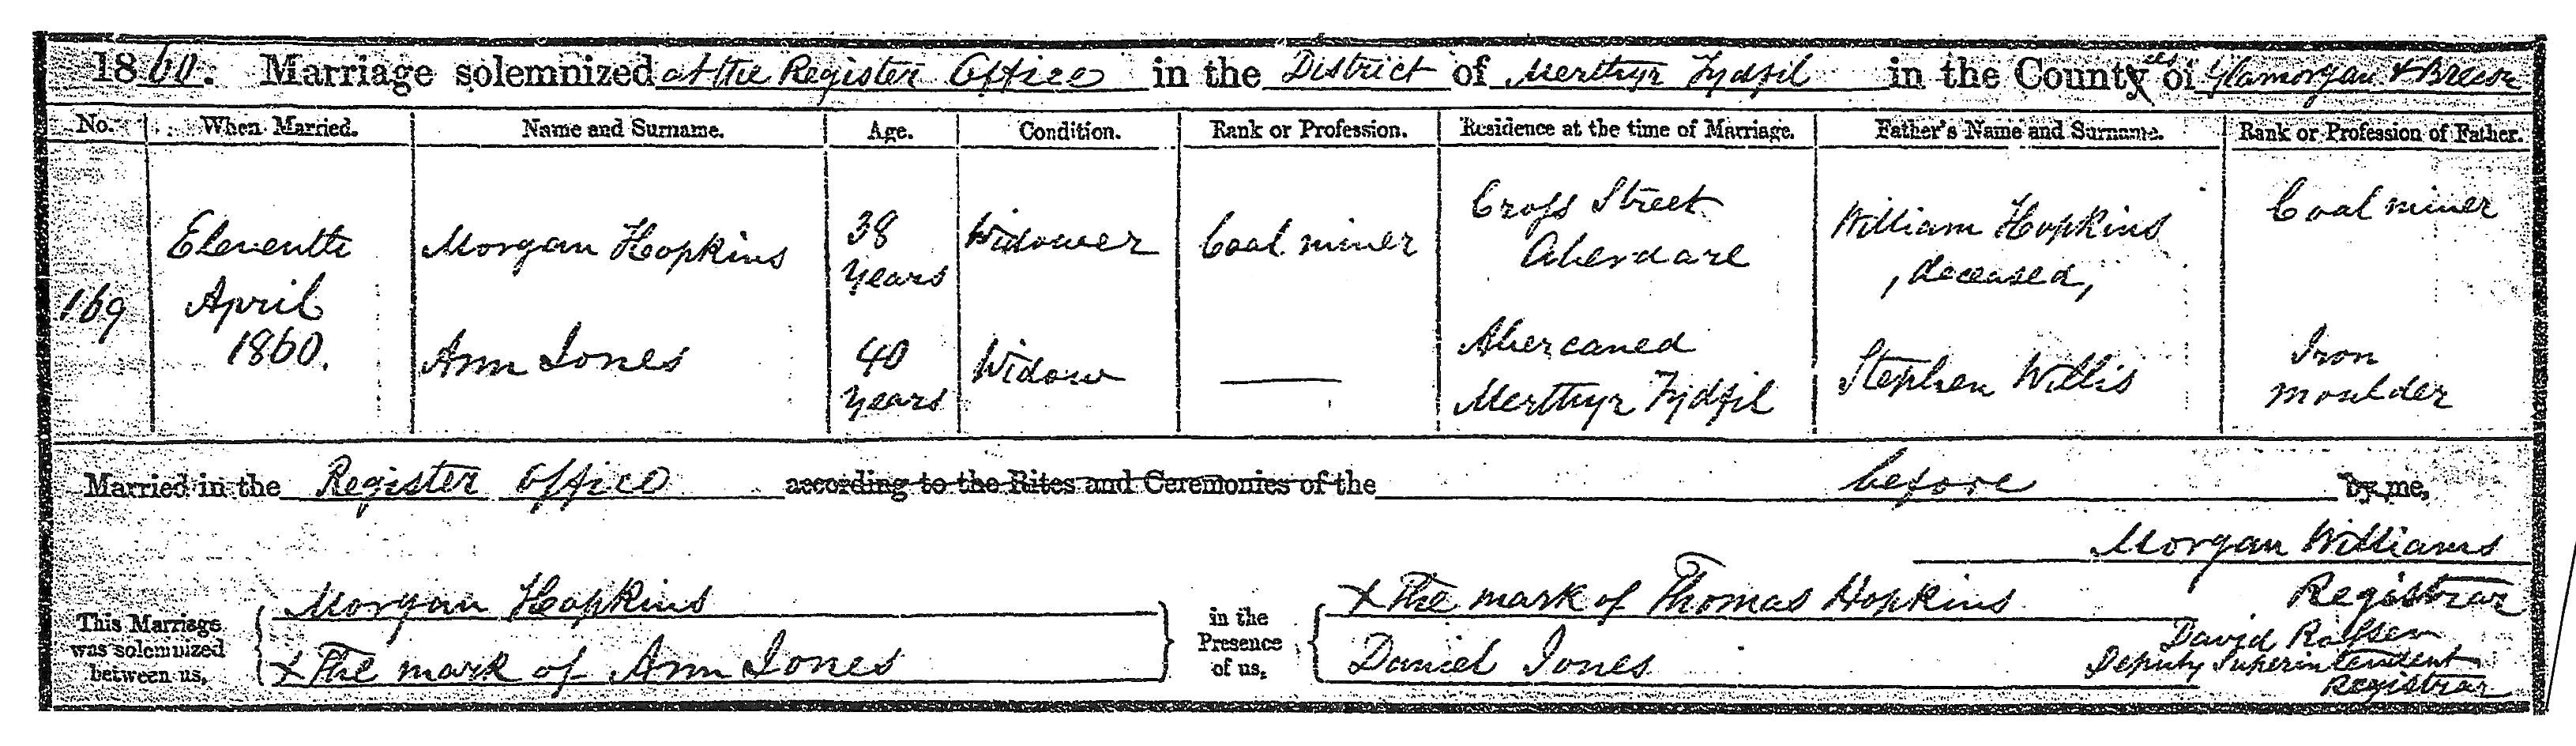 1860. Marriage solemnized at the Register Office in the District of Merthyr Tydfil in the Counties of Glamorgan & Brecon
No. When Married. Name and Surname. Age. Condition. Rank or Profession. Residence at the time of Marriage. Father's Name and Surname. Rank or Profession of Father.
169 Eleventh April 1860. Morgan Hopkins 38 years Widower Coal miner Cross Street Aberdare William Hopkins, deceased, Coal miner
Ann Jones 40 years Widow — Abercaned Merthyr Tydfil Stephen Willis Iron moulder
Married in the Register Office according to the Rites and Ceremonies of the before by me,
Morgan Williams
Registrar
This Marriage was solemnized between us, Morgan Hopkins
X The mark of Ann Jones
in the Presence of us, X The mark of Thomas Hopkins
Daniel Jones
David
Deputy Superintendent
Registrar